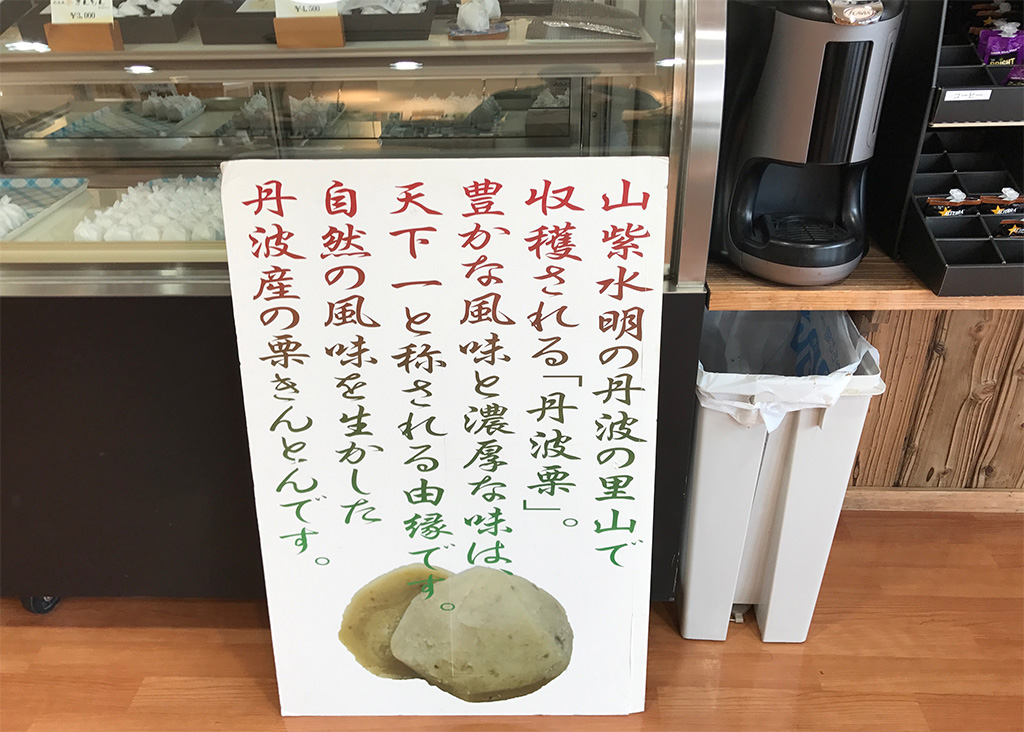 山紫水明の丹波の里山で
収穫される「丹波栗」。
豊かな風味と濃厚な味は、
天下一と称される由縁です。
自然の風味を生かした
丹波産の栗きんとんです。
¥3,000
¥4,500
コーヒー